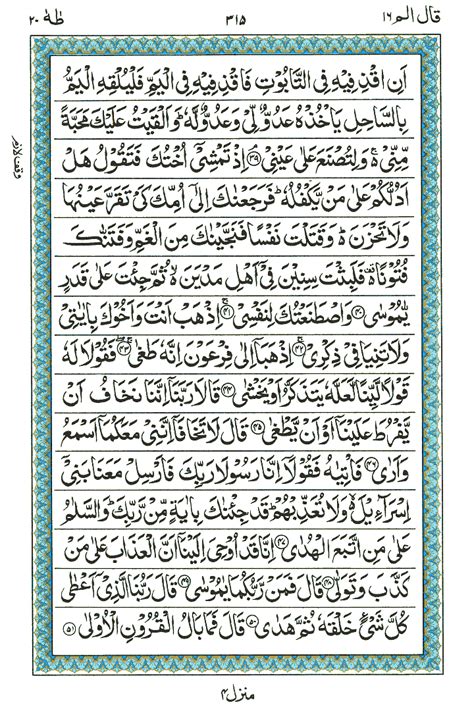 قال الم ١٦ ٣١٥ طٰهٰ ٢٠
اَنِ اقْذِفِيْهِ فِى التَّابُوْتِ فَاقْذِفِيْهِ فِى الْيَمِّ فَلْيُلْقِهِ الْيَمُّ
بِالسَّاحِلِ يَاْخُذْهُ عَدُوٌّ لِّىْ وَعَدُوٌّ لَّهٗ ؕ وَاَلْقَيْتُ عَلَيْكَ مَحَبَّةً
مِّنِّىْ ۚ وَلِتُصْنَعَ عَلٰى عَيْنِىْ ۘ ﴿٣٩﴾ اِذْ تَمْشِىْۤ اُخْتُكَ فَتَقُوْلُ هَلْ
اَدُلُّكُمْ عَلٰى مَنْ يَّكْفُلُهٗ ؕ فَرَجَعْنٰكَ اِلٰٓى اُمِّكَ كَىْ تَقَرَّ عَيْنُهَا
وَلَا تَحْزَنَ ؕ وَقَتَلْتَ نَفْسًا فَنَجَّيْنٰكَ مِنَ الْغَمِّ وَفَتَنّٰكَ
فُتُوْنًا ۬ فَلَبِثْتَ سِنِيْنَ فِىْۤ اَهْلِ مَدْيَنَ ۙ ثُمَّ جِئْتَ عَلٰى قَدَرٍ
يّٰمُوْسٰى ﴿٤٠﴾ وَاصْطَنَعْتُكَ لِنَفْسِىْ ۚ ﴿٤١﴾ اِذْهَبْ اَنْتَ وَاَخُوْكَ بِاٰيٰتِىْ
وَلَا تَنِيَا فِىْ ذِكْرِىْ ۚ ﴿٤٢﴾ اِذْهَبَاۤ اِلٰى فِرْعَوْنَ اِنَّهٗ طَغٰى ۖ ﴿٤٣﴾ فَقُوْلَا لَهٗ
قَوْلًا لَّيِّنًا لَّعَلَّهٗ يَتَذَكَّرُ اَوْ يَخْشٰى ﴿٤٤﴾ قَالَا رَبَّنَاۤ اِنَّنَا نَخَافُ اَنْ
يَّفْرُطَ عَلَيْنَاۤ اَوْ اَنْ يَّطْغٰى ﴿٤٥﴾ قَالَ لَا تَخَافَاۤ اِنَّنِىْ مَعَكُمَاۤ اَسْمَعُ
وَاَرٰى ﴿٤٦﴾ فَاْتِيٰهُ فَقُوْلَاۤ اِنَّا رَسُوْلَا رَبِّكَ فَاَرْسِلْ مَعَنَا بَنِىْۤ
اِسْرَآءِيْلَ ۙ وَلَا تُعَذِّبْهُمْ ؕ قَدْ جِئْنٰكَ بِاٰيَةٍ مِّنْ رَّبِّكَ ؕ وَالسَّلٰمُ
عَلٰى مَنِ اتَّبَعَ الْهُدٰى ﴿٤٧﴾ اِنَّا قَدْ اُوْحِىَ اِلَيْنَاۤ اَنَّ الْعَذَابَ عَلٰى مَنْ
كَذَّبَ وَتَوَلّٰى ﴿٤٨﴾ قَالَ فَمَنْ رَّبُّكُمَا يٰمُوْسٰى ﴿٤٩﴾ قَالَ رَبُّنَا الَّذِىْۤ اَعْطٰى
كُلَّ شَىْءٍ خَلْقَهٗ ثُمَّ هَدٰى ﴿٥٠﴾ قَالَ فَمَا بَالُ الْقُرُوْنِ الْاُوْلٰى ﴿٥١﴾
وقف لازم
منزل ٤